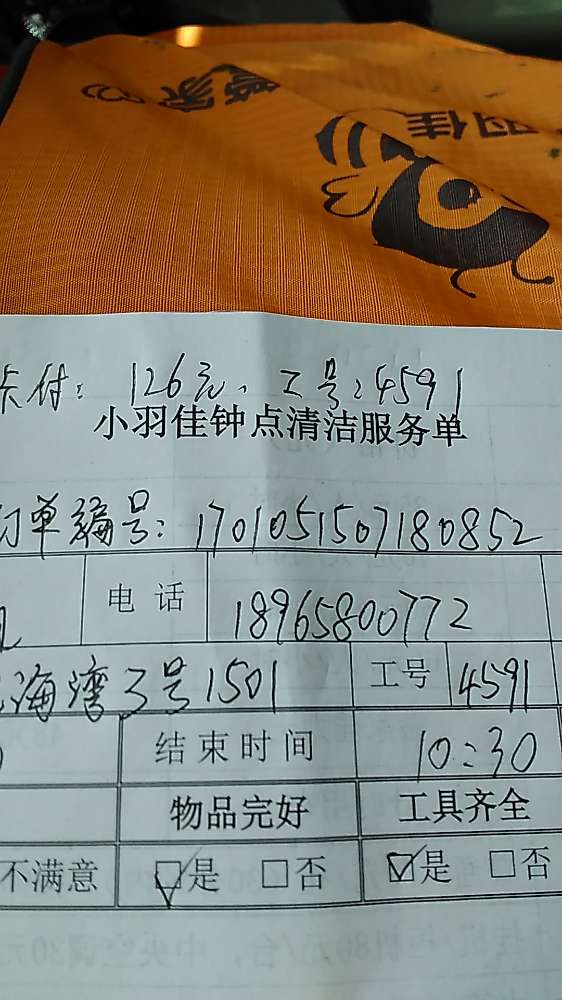 羽佳
管家
卡付：126元，工号：4591
小羽佳钟点清洁服务单
订单编号：1701051507180852
电话 18965800772
海湾3号1501 工号 4591
结束时间 10:30
物品完好 工具齐全
不满意 □是 □否 □是 □否